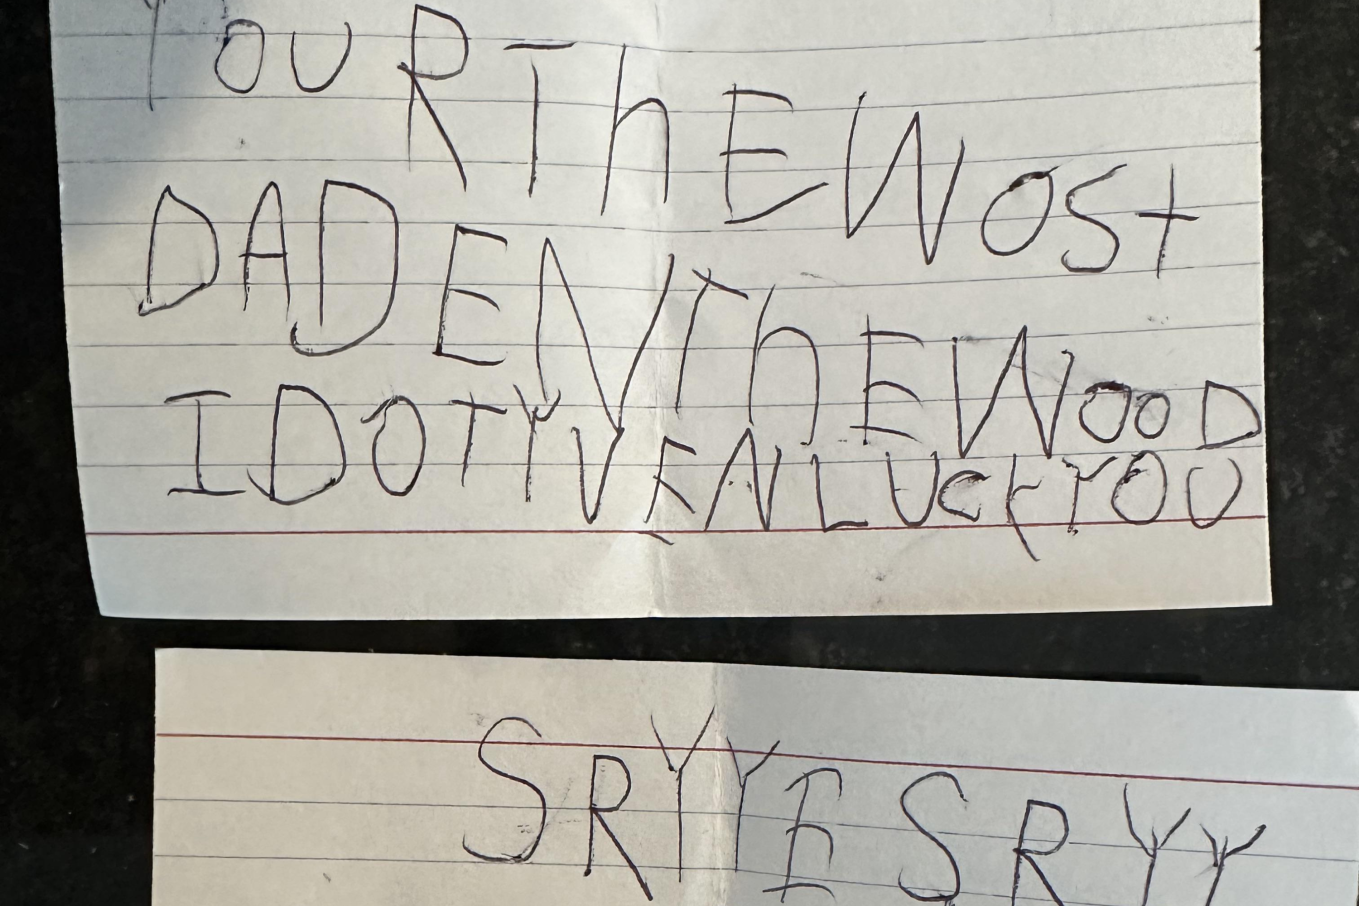 YOUR ThE WOSt
DAD EN ThE WooD
I DOT YVEN LUcK YOU
SRYYESRYY